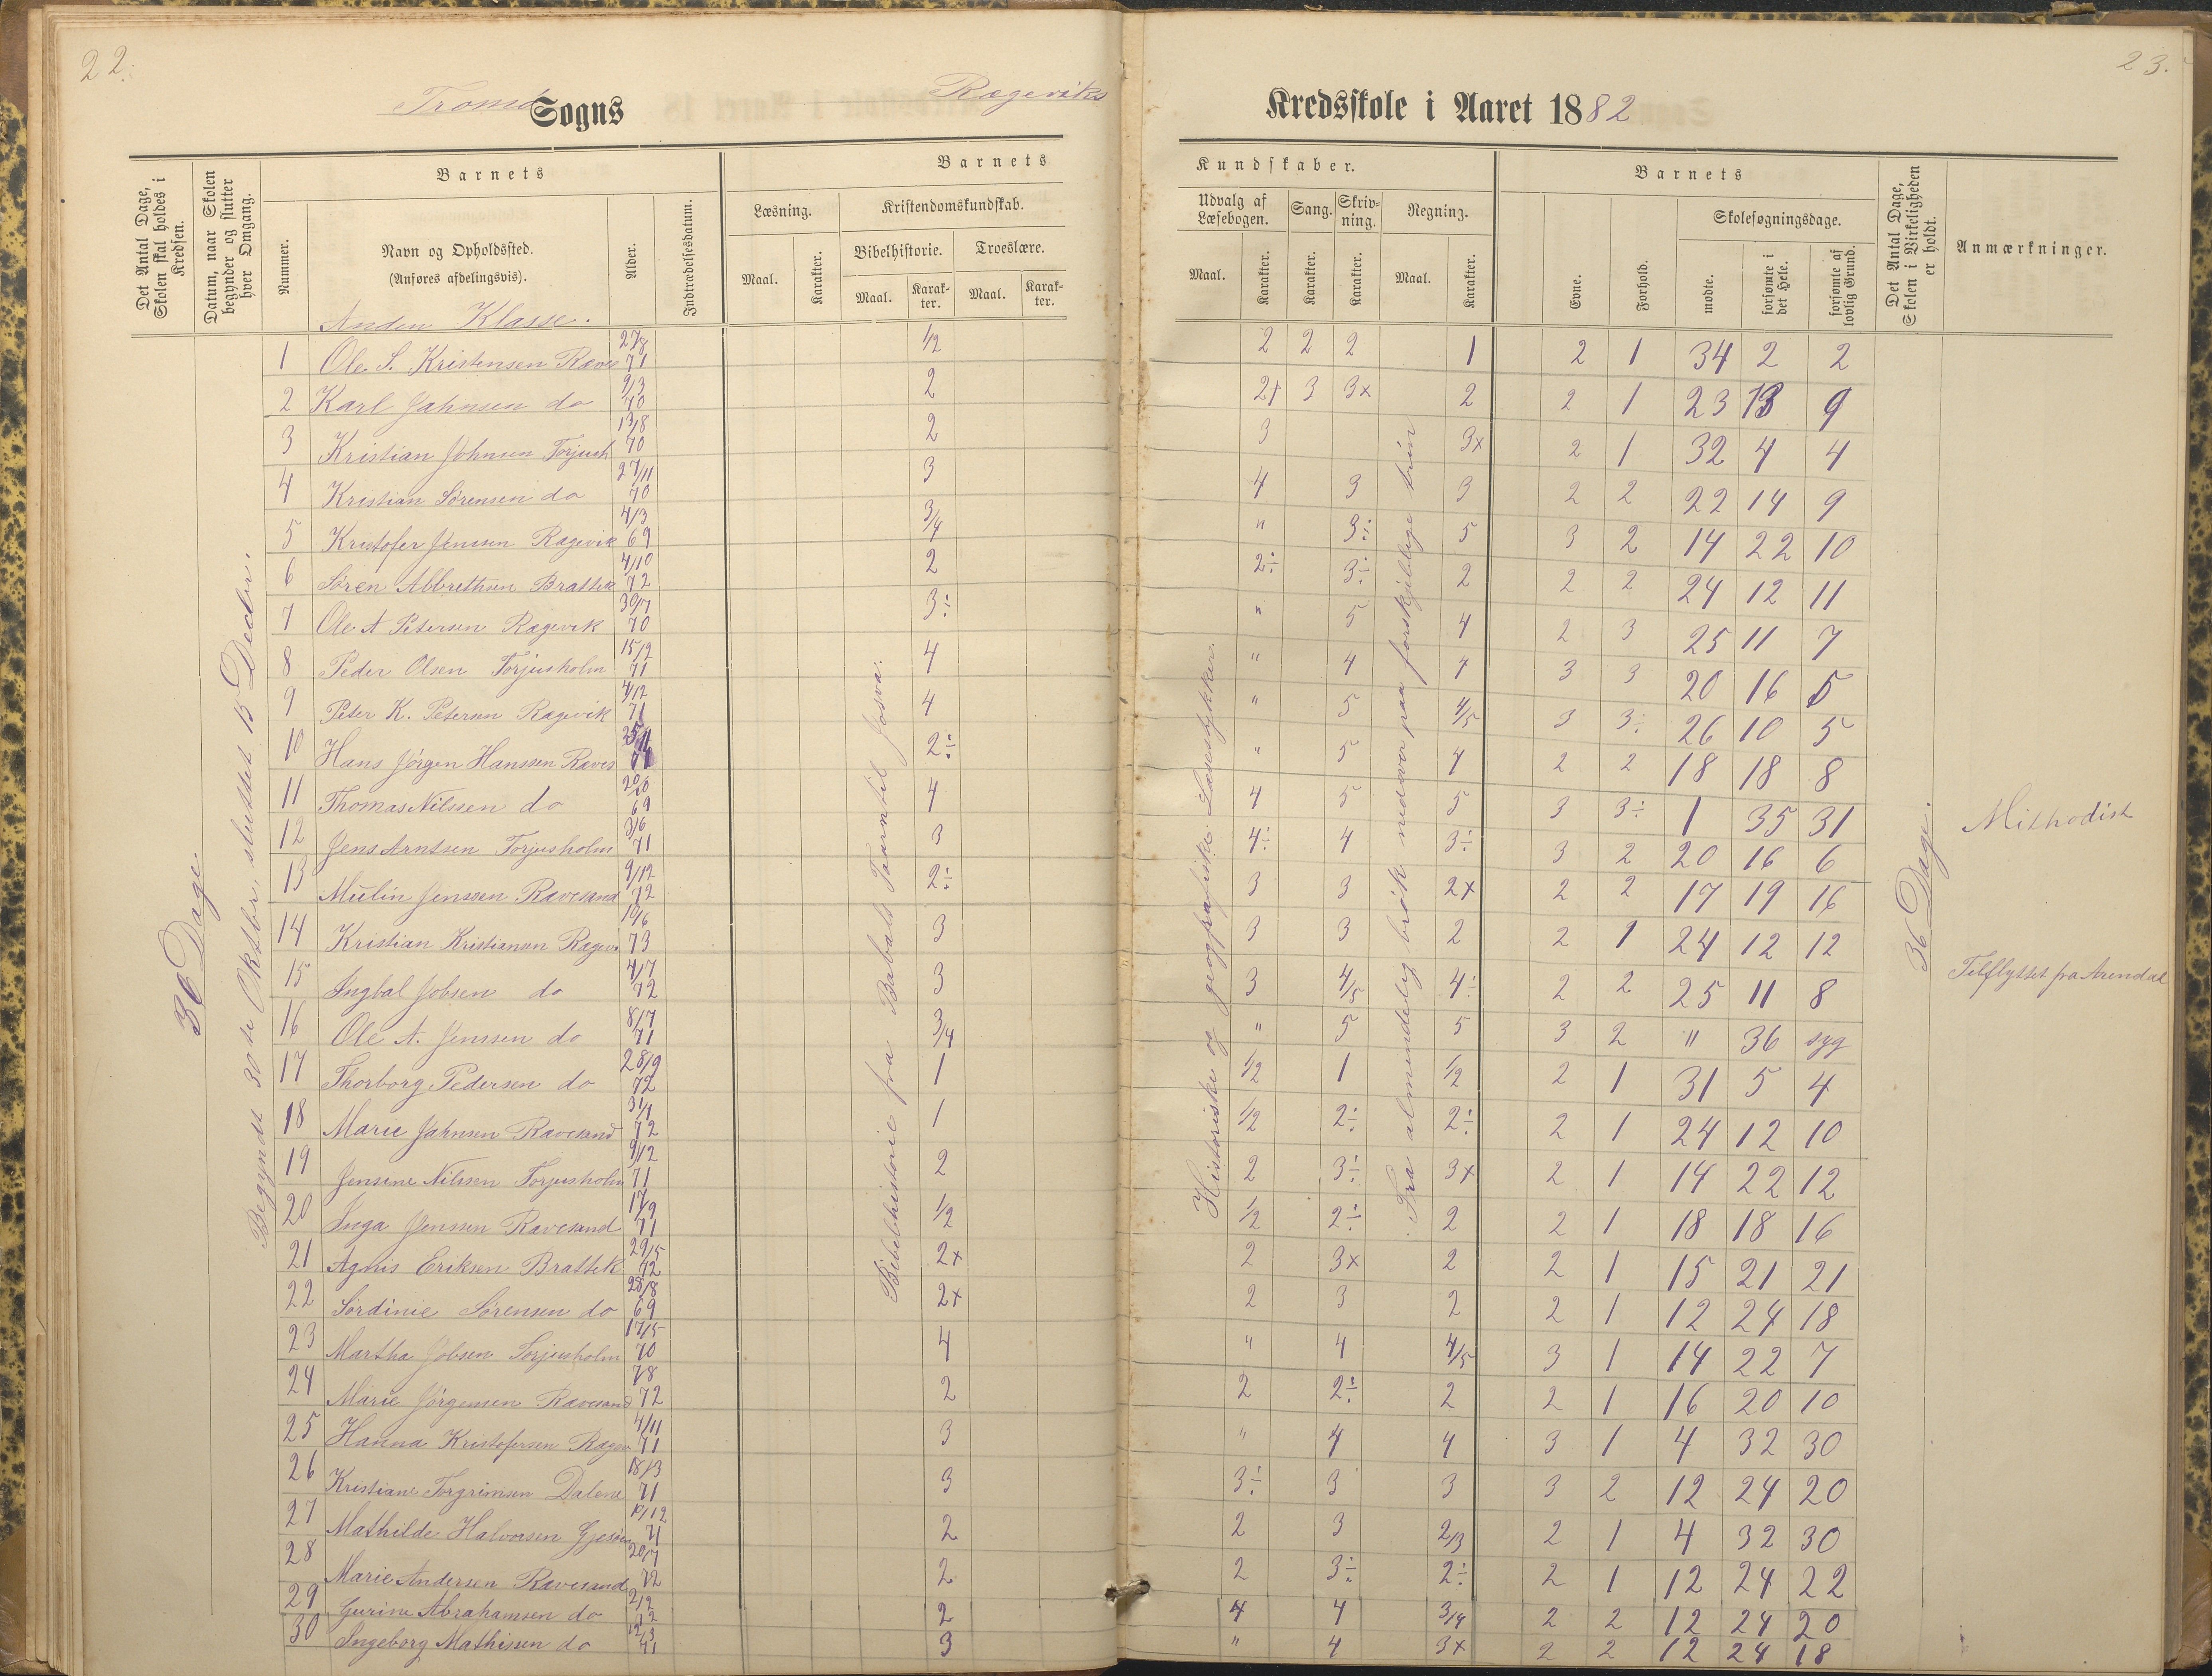 22.
23.
Tromø Sogns
Rægeviks Kredsskole i Aaret 1882
Det Antal Dage, Skolen skal holdes i Kredsen.
Datum, naar Skolen begynder og slutter hver Omgang.
Nummer.
Barnets
Navn og Opholdssted.
(Anføres afdelingsvis).
Alder.
Indtrædelsesdatum.
Barnets Kundskaber.
Læsning.
Maal.
Karakter.
Kristendomskundskab.
Bibelhistorie.
Maal.
Karakter.
Troeslære.
Maal.
Karakter.
Udvalg af Læsebogen.
Maal.
Karakter.
Sang.
Karakter.
Skrivning.
Karakter.
Regning.
Maal.
Karakter.
Barnets
Evne.
Forhold.
Skolesøgningsdage.
mødte.
forsømte i det Hele.
forsømte af lovlig Grund.
Det Antal Dage, Skolen i Virkeligheden er holdt.
Anmærkninger.
Anden Klasse.
36 Dage
Begyndt 30te Oktbr, sluttet 15 Decbr.
Bibelhistorie fra Babels Taarn til Josva.
Historiske og geografiske Læsestykker.
Fra almindelig brøk nedover paa forskjellige trin
36 Dage.
1 Ole S. Kristensen Raves 27/8 71 1/2 2 2 2 1 2 1 34 2 2
2 Karl Jahnsen do 9/3 70 2 2+ 3 3x 2 2 1 23 13 9
3 Kristian Johnsen Torjush 13/8 70 2 3 3x 2 1 32 4 4
4 Kristian Sørensen do 27/11 70 3 4 3 3 2 2 22 14 9
5 Kristofer Jensen Rægevik 4/3 69 3/4 " 3÷ 5 3 2 14 22 10
6 Søren Abbrethsen Brattek 4/10 72 2 2÷ 3÷ 2 2 2 24 12 11
7 Ole A Petersen Rægevik 30/7 70 3÷ " 5 4 2 3 25 11 7
8 Peder Olsen Torjusholm 15/2 71 4 " 4 4 3 3 20 16 5
9 Peter K. Petersen Rægevik 4/12 71 4 " 5 4/5 3 3÷ 26 10 5
10 Hans Jørgen Hanssen Raves 2÷ " 5 4 2 2 18 18 8
11 Thomas Nilssen do 69 4 4 5 5 3 3÷ 1 35 31 Methodist
12 Jens Arntsen Torjusholm 3/6 71 3 4÷ 4 3÷ 3 2 20 16 6
13 Mulin Jenssen Ravesand 9/12 72 2÷ 3 3 2x 2 2 17 19 16
14 Kristian Kristiansen Rægev 10/6 73 3 3 3 2 2 1 24 12 12
15 Ingbal Jobsen do 4/7 72 3 3 4/5 4÷ 2 2 25 11 8 Tilflyttet fra Arendal
16 Ole A. Jenssen do 8/7 71 3/4 " 5 5 3 2 " 36 syg
17 Thorborg Pedersen do 28/9 72 1 1/2 1 1/2 2 1 31 5 4
18 Marie Jahnsen Ravesand 31/1 72 1 1/2 2÷ 2÷ 2 1 24 12 10
19 Jensine Nilssen Torjusholm 9/12 71 2 2 3÷ 3x 2 1 14 22 12
20 Inga Jenssen Ravesand 17/9 71 1/2 1/2 2÷ 2 2 1 18 18 16
21 Agnes Eriksen Brattek 29/5 72 2x 2 3x 2 2 1 15 21 21
22 Sørdinie Sørensen do 28/8 69 2x 2 3 2 2 1 12 24 18
23 Martha Jobsen Torjusholm 17/5 70 4 " 4 4/5 3 1 14 22 7
24 Marie Jørgensen Ravesand 7/8 72 2 2 2÷ 2 2 1 16 20 10
25 Hanna Kristofersen Rægev 4/11 71 3 " 4 4 3 1 4 32 30
26 Kristiane Torgrimsen Dalene 18/3 71 3 3÷ 3 3 3 2 12 24 20
27 Mathilde Halvorsen 10/12 71 2 2 3 2/3 2 1 4 32 30
28 Marie Andersen Ravesand 20/7 72 2 2 3÷ 2÷ 2 1 12 24 22
29 Gurine Abrahamsen do 2/2 72 2 4 4 3/4 2 2 12 24 20
30 Ingeborg Mathisen do 12/3 71 3 " 4 3x 2 2 12 24 18